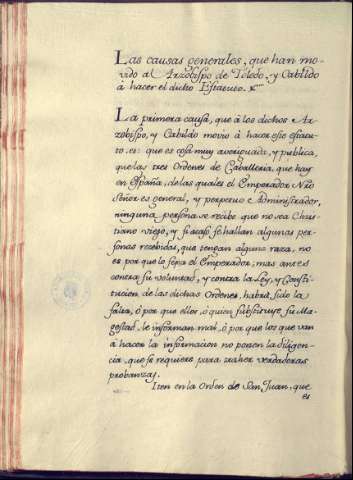 Las causas generales, que han mo-
vido al Arzobispo de Toledo, y Cabildo
à hacer el dicho Estatuto.
La primera causa, que à los dichos Ar-
zobispo, y Cabildo movio à hacer este estatu-
to, es: que es cosa muy averiguada, y publica,
que las tres Ordenes de Caballeria, que hay
en España, de las quales el Emperador Nrō
Señor es general, y perpetuo Administrador,
ninguna persona se recibe que no sea Chris-
tiano viejo, y si acaso se hallan algunas per-
sonas recebidas, que tengan alguna raza, no
es por que lo sepa el Emperador; mas antes
contra su voluntad, y contra la Ley, y Consti-
tucion de las dichas Ordenes, habrà sido la
falta, ò por que ellos, ò quien substituye su Ma-
gestad le informan mal, ò por que los que van
à hacer la informacion no ponen la diligen-
cia, que se requiere para traher verdaderas
probanzas.
Iten en la Orden de San Juan, que
es